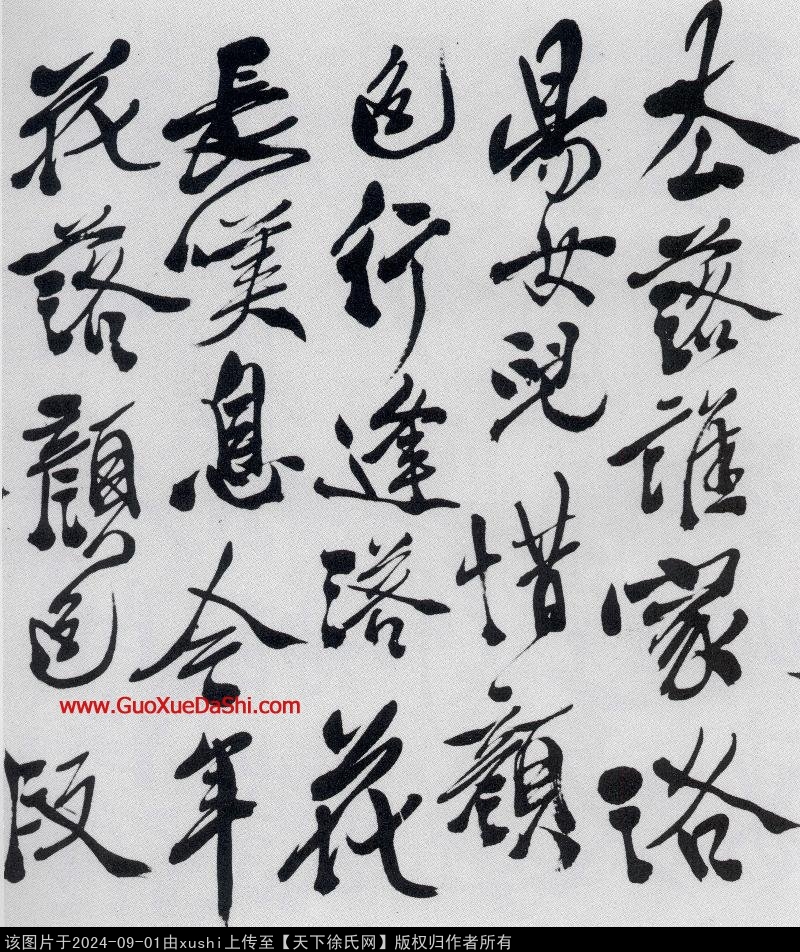 去落誰家洛
陽女兒惜顏
色行逢落花
長嘆息今年
花落顏色改
www.GuoXueDaShi.com
该图片于2024-09-01由xushi上传至【天下徐氏网】版权归作者所有